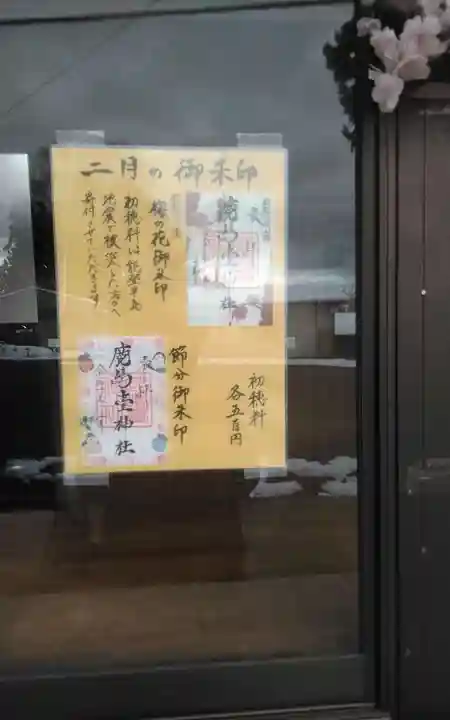 二月の御朱印
梅の花御朱印
初穂料は能登半島
地震で被災した方々へ
寄付させていただきます
鹿島台神社
節分御朱印
初穂料
各五百円
鹿島台神社